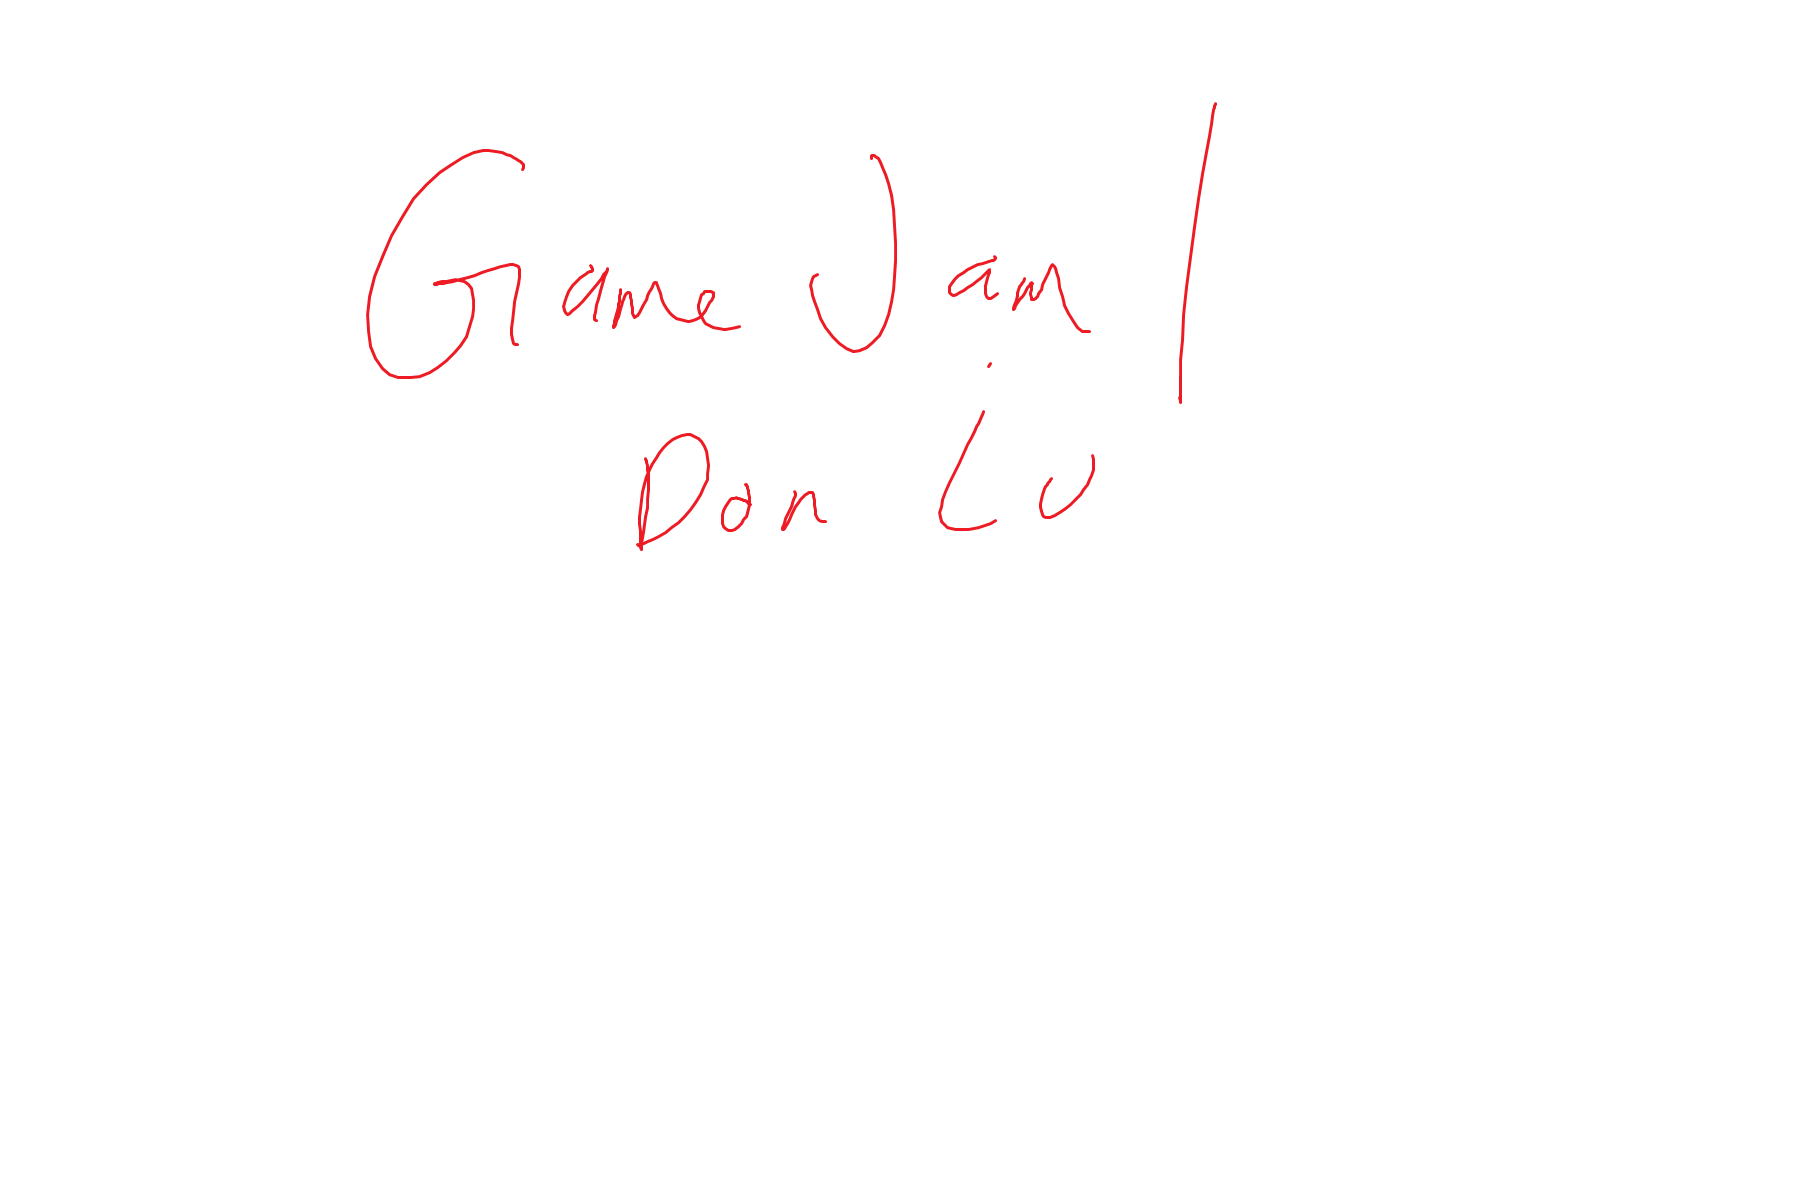 Game Jam 1
Don Lu